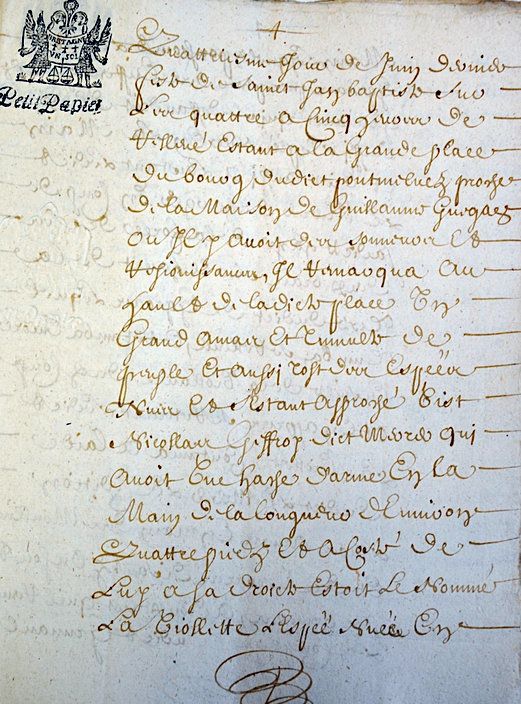 4
BRETAGNE
UN SOL
Petit Papier
Quattriesme Jour de Juin dernier
feste de Sainct Jan baptiste Sur
Les quattre a Cincq heures de
Estant a la Grande place
du bourcq dudict pontmelvez proche
de la Maison de Guillaume
Ou Jl y Avoit des sonneurs Et
Resiouissances, Jl Remarqua Au
hault de ladicte place Un
Grand Amair Et Tumulte de
peuple Et Aussi tost des Espées
Nues Et s'Estant Approché Vist
Nicollas Jeffroy dict Merde qui
Avoit Une hache d'arme En la
Main de la longueur d'Environ
Quattre piedz Et a Costé de
Luy a sa droicte Estoit Le Nommé
La Viollette L'Espée Nuée En